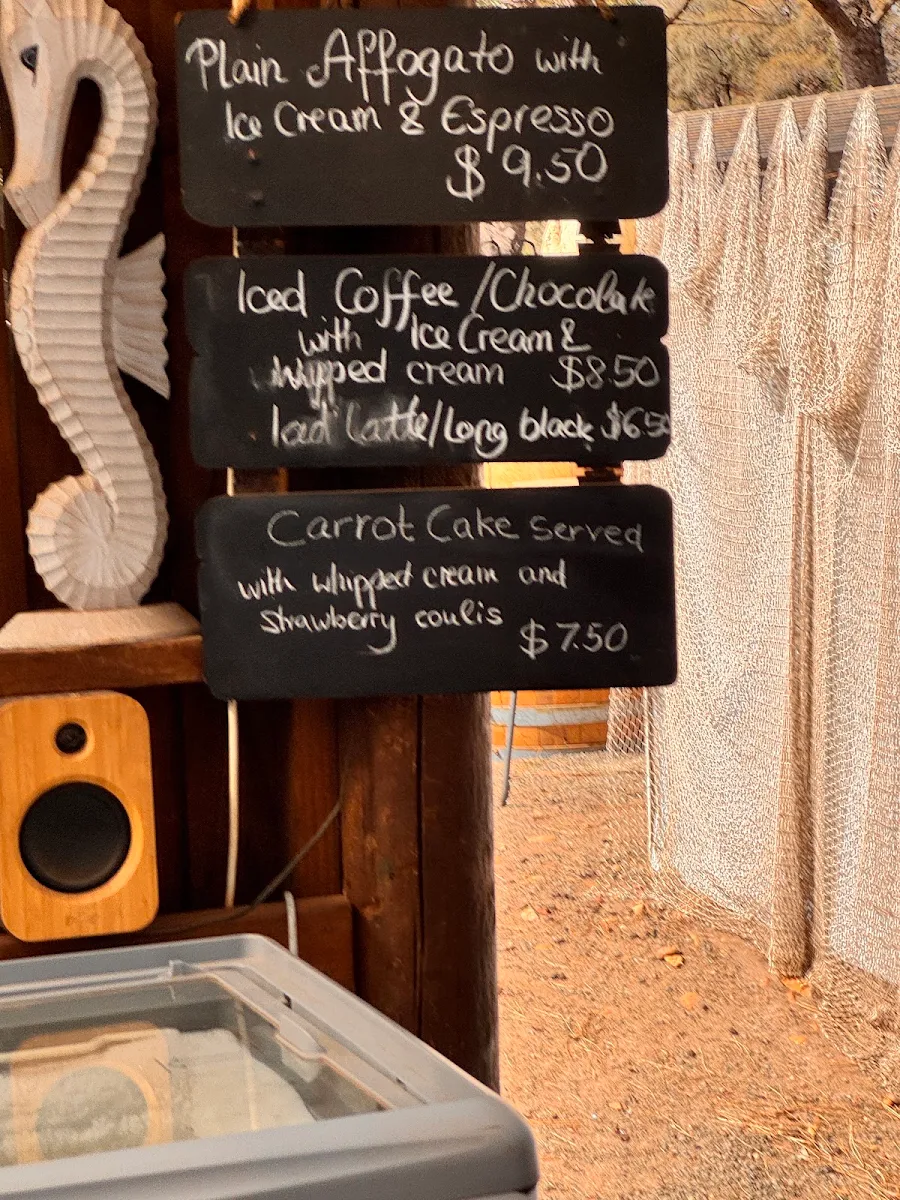 Plain Affogato with
Ice Cream & Espresso
$ 9.50
Iced Coffee /Chocolate
with Ice Cream &
Whipped cream $8.50
Iced Latte/Long black $6.50
Carrot Cake Served
with whipped cream and
Strawberry coulis
$ 7.50